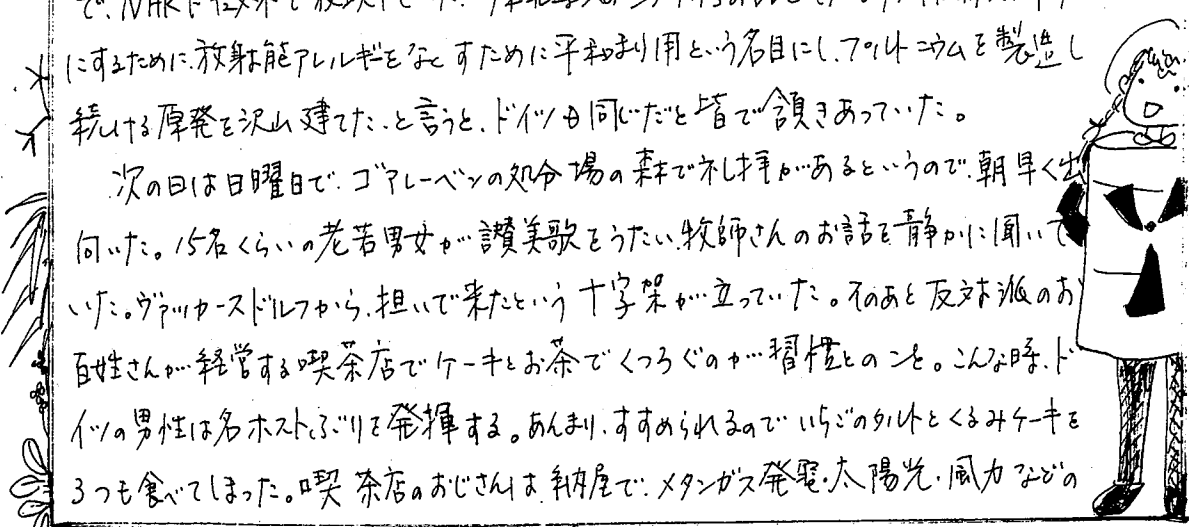 で、NHKに
にするために、放射能アレルギーをなくすために平和利用という名目にし、プルトニウムを製造し
続ける原発を沢山建てた、と言うと、ドイツも同じだと皆で頷きあっていた。
次の日は日曜日で、ゴアレーベンの処分場の森で礼拝があるというので、朝早く出
向いた。15名くらいの老若男女が讃美歌をうたい、牧師さんのお話を静かに聞いて
いた。ヴァッカースドルフから、担いで来たという十字架が立っていた。そのあと反対派のお
百姓さんが経営する喫茶店でケーキとお茶でくつろぐのが習慣とのこと。こんな時、ド
イツの男性は名ホストぶりを発揮する。あんまり、すすめられるのでいちごのタルトとくるみケーキを
3つも食べてしまった。喫茶店のおじさんは、納屋で、メタンガス発電・太陽光・風力などの